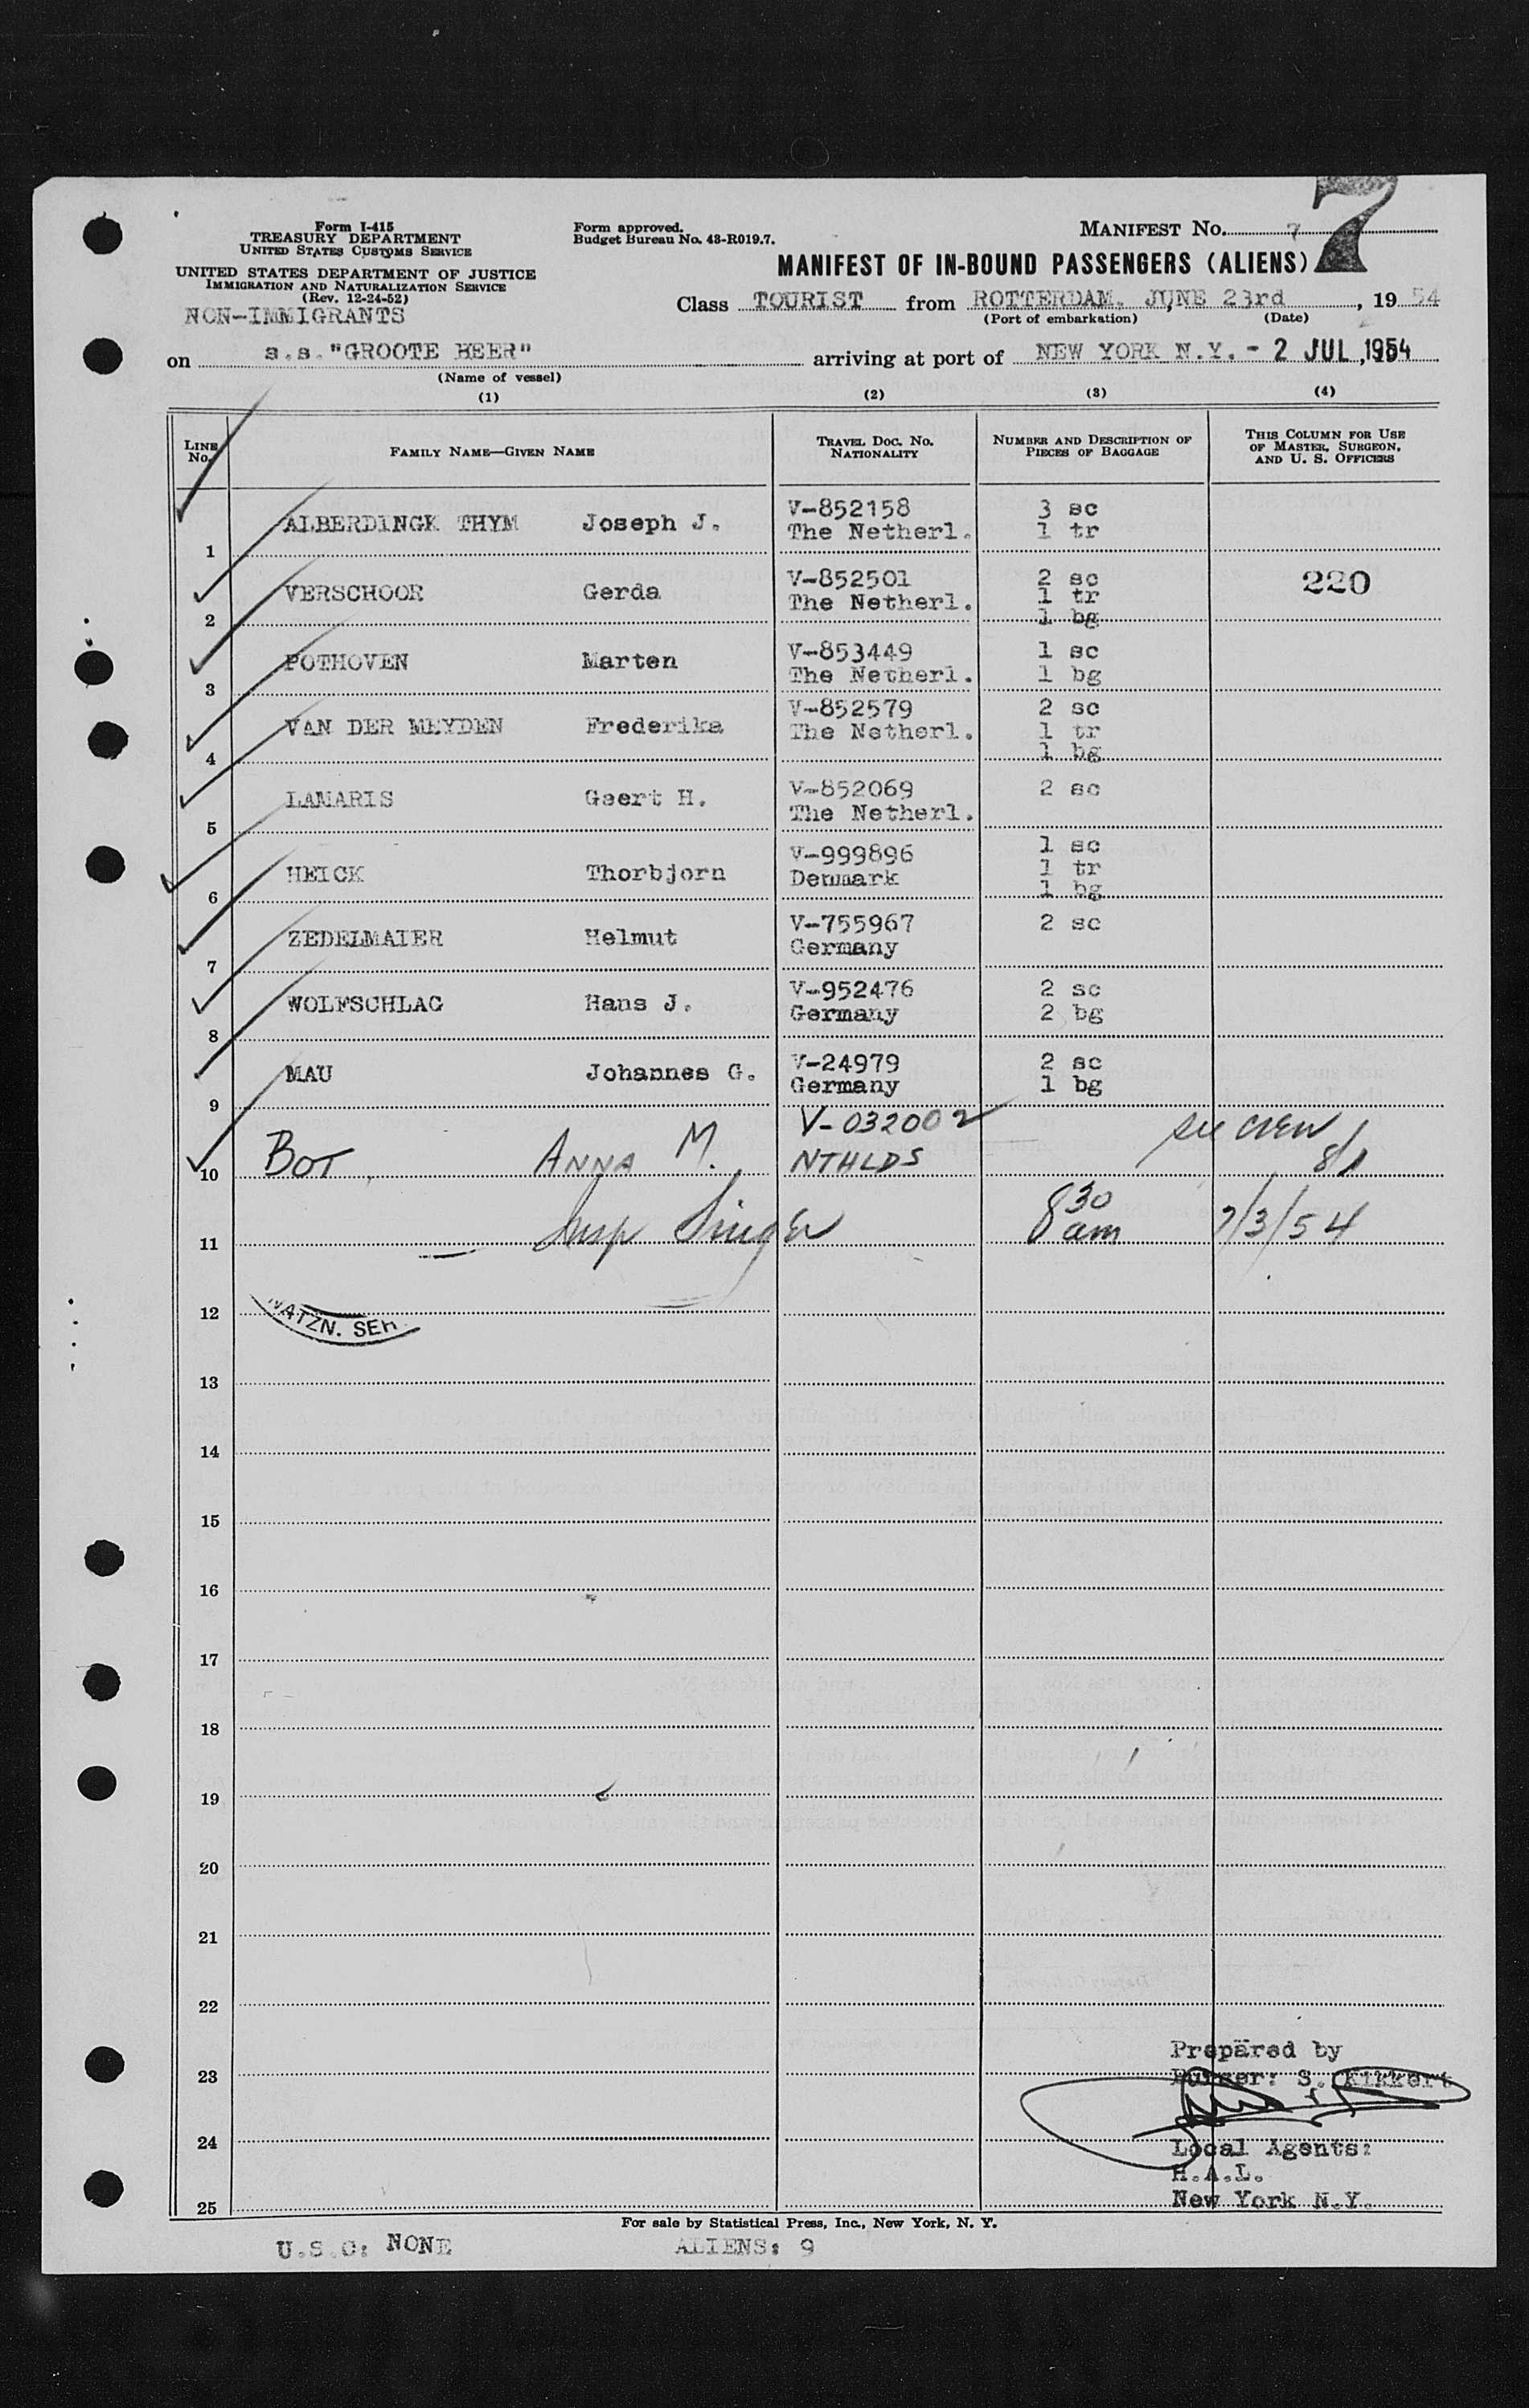 7
Form I-415
TREASURY DEPARTMENT
UNITED STATES CUSTOMS SERVICE
UNITED STATES DEPARTMENT OF JUSTICE
IMMIGRATION AND NATURALIZATION SERVICE
(Rev. 12-24-52)
NON-IMMIGRANTS
Form approved.
Budget Bureau No. 43-R019.7.
MANIFEST No. 7
MANIFEST OF IN-BOUND PASSENGERS (ALIENS)
Class TOURIST from ROTTERDAM, JUNE 23rd, 1954
(Port of embarkation) (Date)
on s.s."GROOTE BEER" arriving at port of NEW YORK N.Y. - 2 JUL, 1954
(Name of vessel)
(1) (2) (3) (4)
LINE No. FAMILY NAME—GIVEN NAME TRAVEL DOC. NO. NATIONALITY NUMBER AND DESCRIPTION OF PIECES OF BAGGAGE THIS COLUMN FOR USE OF MASTER, SURGEON, AND U. S. OFFICERS
1 ALBERDINGK THYM Joseph J. V-852158 The Netherl. 3 sc 1 tr
2 VERSCHOOR Gerda V-852501 The Netherl. 2 sc 1 tr 1 bg 220
3 POTHOVEN Marten V-853449 The Netherl. 1 sc 1 bg
4 VAN DER MEYDEN Frederika V-852579 The Netherl. 2 sc 1 tr 1 bg
5 LAMARIS Geert H. V-852069 The Netherl. 2 sc
6 HEICK Thorbjorn V-999896 Denmark 1 sc 1 tr 1 bg
7 ZEDELMAIER Helmut V-755967 Germany 2 sc
8 WOLFSCHLAG Hans J. V-952476 Germany 2 sc 2 bg
9 MAU Johannes G. V-24979 Germany 2 sc 1 bg
10 BOT ANNA M. V-032002 NTHLDS see crew
11 Insp Singer 8 30 am 7/3/54
12 NATZN. SER
13
14
15
16
17
18
19
20
21
22
Prepared by
23 Purser: S. Kikkert
24 Local Agents:
H.A.L.
25 New York N.Y.
For sale by Statistical Press, Inc., New York, N. Y.
U.S.C: NONE ALIENS: 9